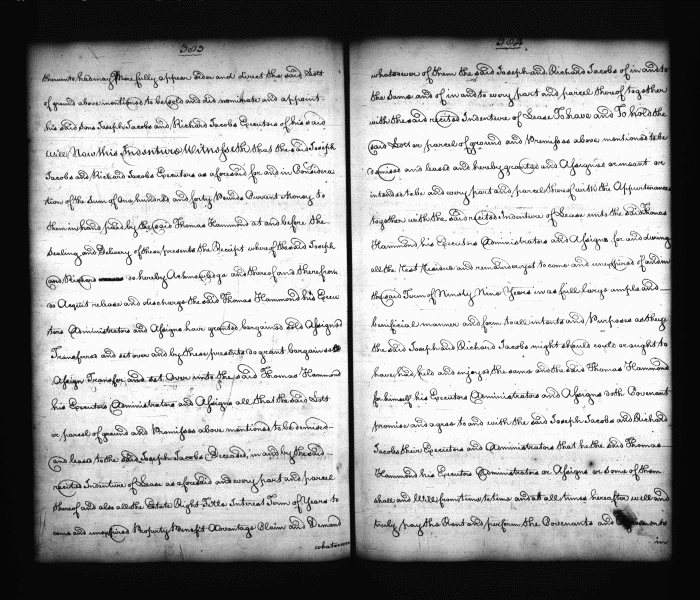 383
thereunto had may More fully appear Order and direct the said Lott
of ground above mentioned to be sold and did nominate and appoint
his said sons Joseph Jacobs and Richard Jacobs Executors of his said
Will Now this Indenture Witnesseth that the said Joseph
Jacobs and Richard Jacobs Executors as aforesaid for and in Considera
tion of the Sum of One hundred and forty Pounds Current Money to
them in hand paid by the said Thomas Hammond at and before the
Sealing and Delivery of these presents the Receipt whereof the said Joseph
and Richard do hereby Acknowledge and thereof and therefrom
do Acquit release and discharge the said Thomas Hammond his Execu
tors Administrators and Assigns have granted bargained Sold Assigned
Transfered and set over and by these presents do grant bargain sell
Assign Transfer and set Over unto the said Thomas Hammond
his Executors Administrators and Assigns all that the said Lott
or parcel of ground and Premisses above mentioned to be demised
and leased to the said Joseph Jacobs Deceased, in and by the said
recited Indenture of Lease as aforesaid and every part and parcel
thereof and also all the Estate Right Title Interest Term of Years to
come and unexpired Property Benefit Advantage Claim and Demand
whatsoever
384
whatsoever of them the said Joseph and Richard Jacobs of in and to
the Same and of in and to every part and parcel thereof together
with the said recited Indenture of Lease To have and To hold the
said Lott or parcel of ground and Premisses above mentioned to be
demised and leased and hereby granted and Assigned or meant or
intended to be and every part and parcel thereof with the Appurtenances
together with the said recited Indenture of Lease unto the said Thomas
Hammond, his Executors Administrators and Assigns for and during
all the Rest Residue and remainder yet to come and unexpired of and in
the said Term of Ninety Nine Years in as full large ample and
beneficial manner and form to all intents and Purposes as they
the said Joseph and Richard Jacobs might should could or ought to
have held and enjoyed the same and the said Thomas Hammond
for himself his Executors Administrators and Assigns doth Covenant
promise and agree to and with the said Joseph Jacobs and Richard
Jacobs their Executors and Administrators that he the said Thomas
Hammond his Executors Administrators or Assigns or Some of them
shall and Will from time to time and at all times hereafter well and
truly pay the Rent and perform the Covenants and
in